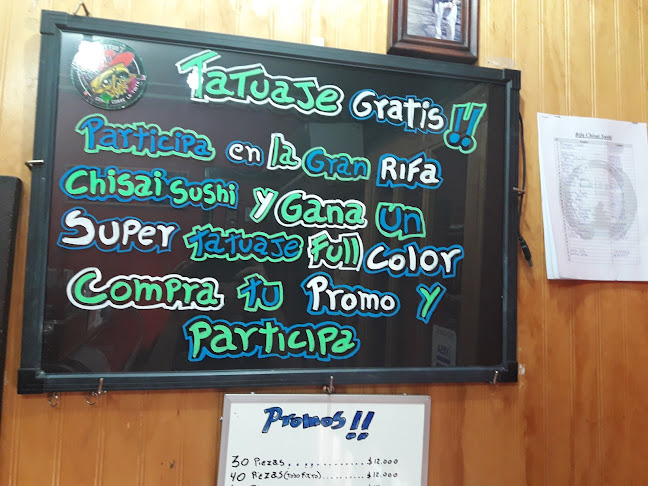 Tatuaje Gratis!!
Participa en la Gran Rifa
Chisai Sushi y Gana un
Super Tatuaje Full Color
Compra tu Promo y
Participa
Rifa Chisai Sushi
Promos!!
30 Piezas.............$12.000